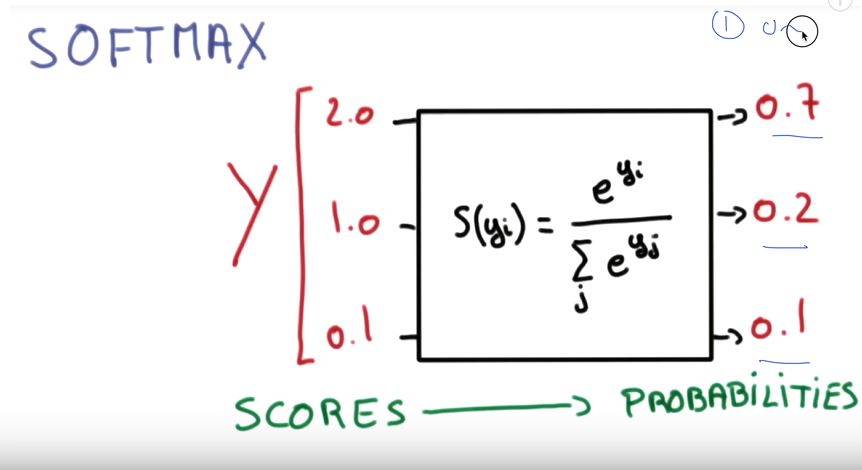 SOFTMAX
①
Y
2.0
1.0
0.1
S(yᵢ) = e^yᵢ / Σⱼ e^yⱼ
0.7
0.2
0.1
SCORES → PROBABILITIES